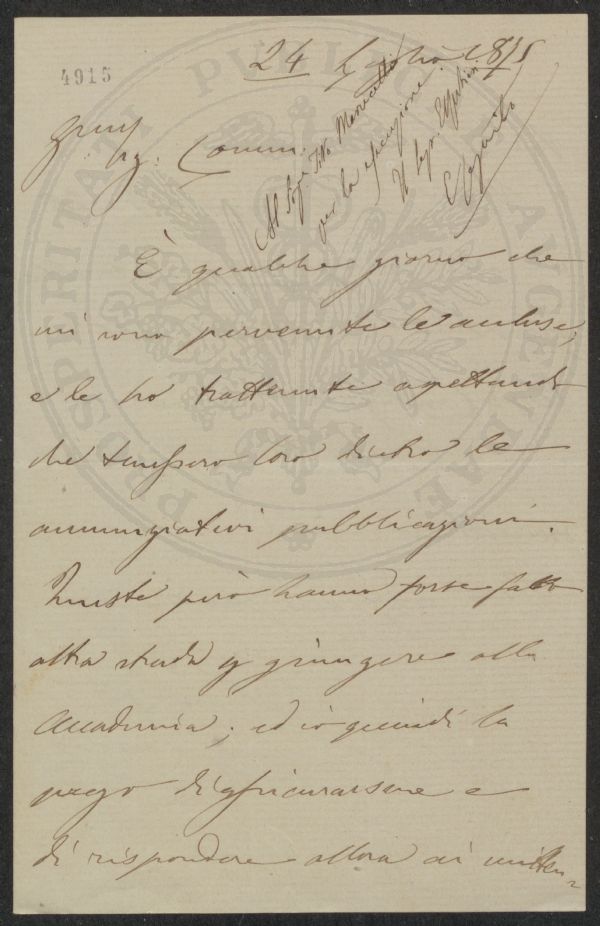 4915
24 Luglio 1875
Sig. Comm.
Al Sig. Tito
per la esecuzione
Il Segr.
È qualche giorno che
mi sono pervenute le accluse,
e le ho trattenute aspettando
che tenessero loro dietro le
annunziatevi pubblicazioni.
Queste però hanno forse fatto
altra strada per giungere alla
Accademia; ed io quindi la
prego di assicurarsene e
di rispondere allora ai mitten=
PROSPERITATI PUBLICAE AUGENDAE